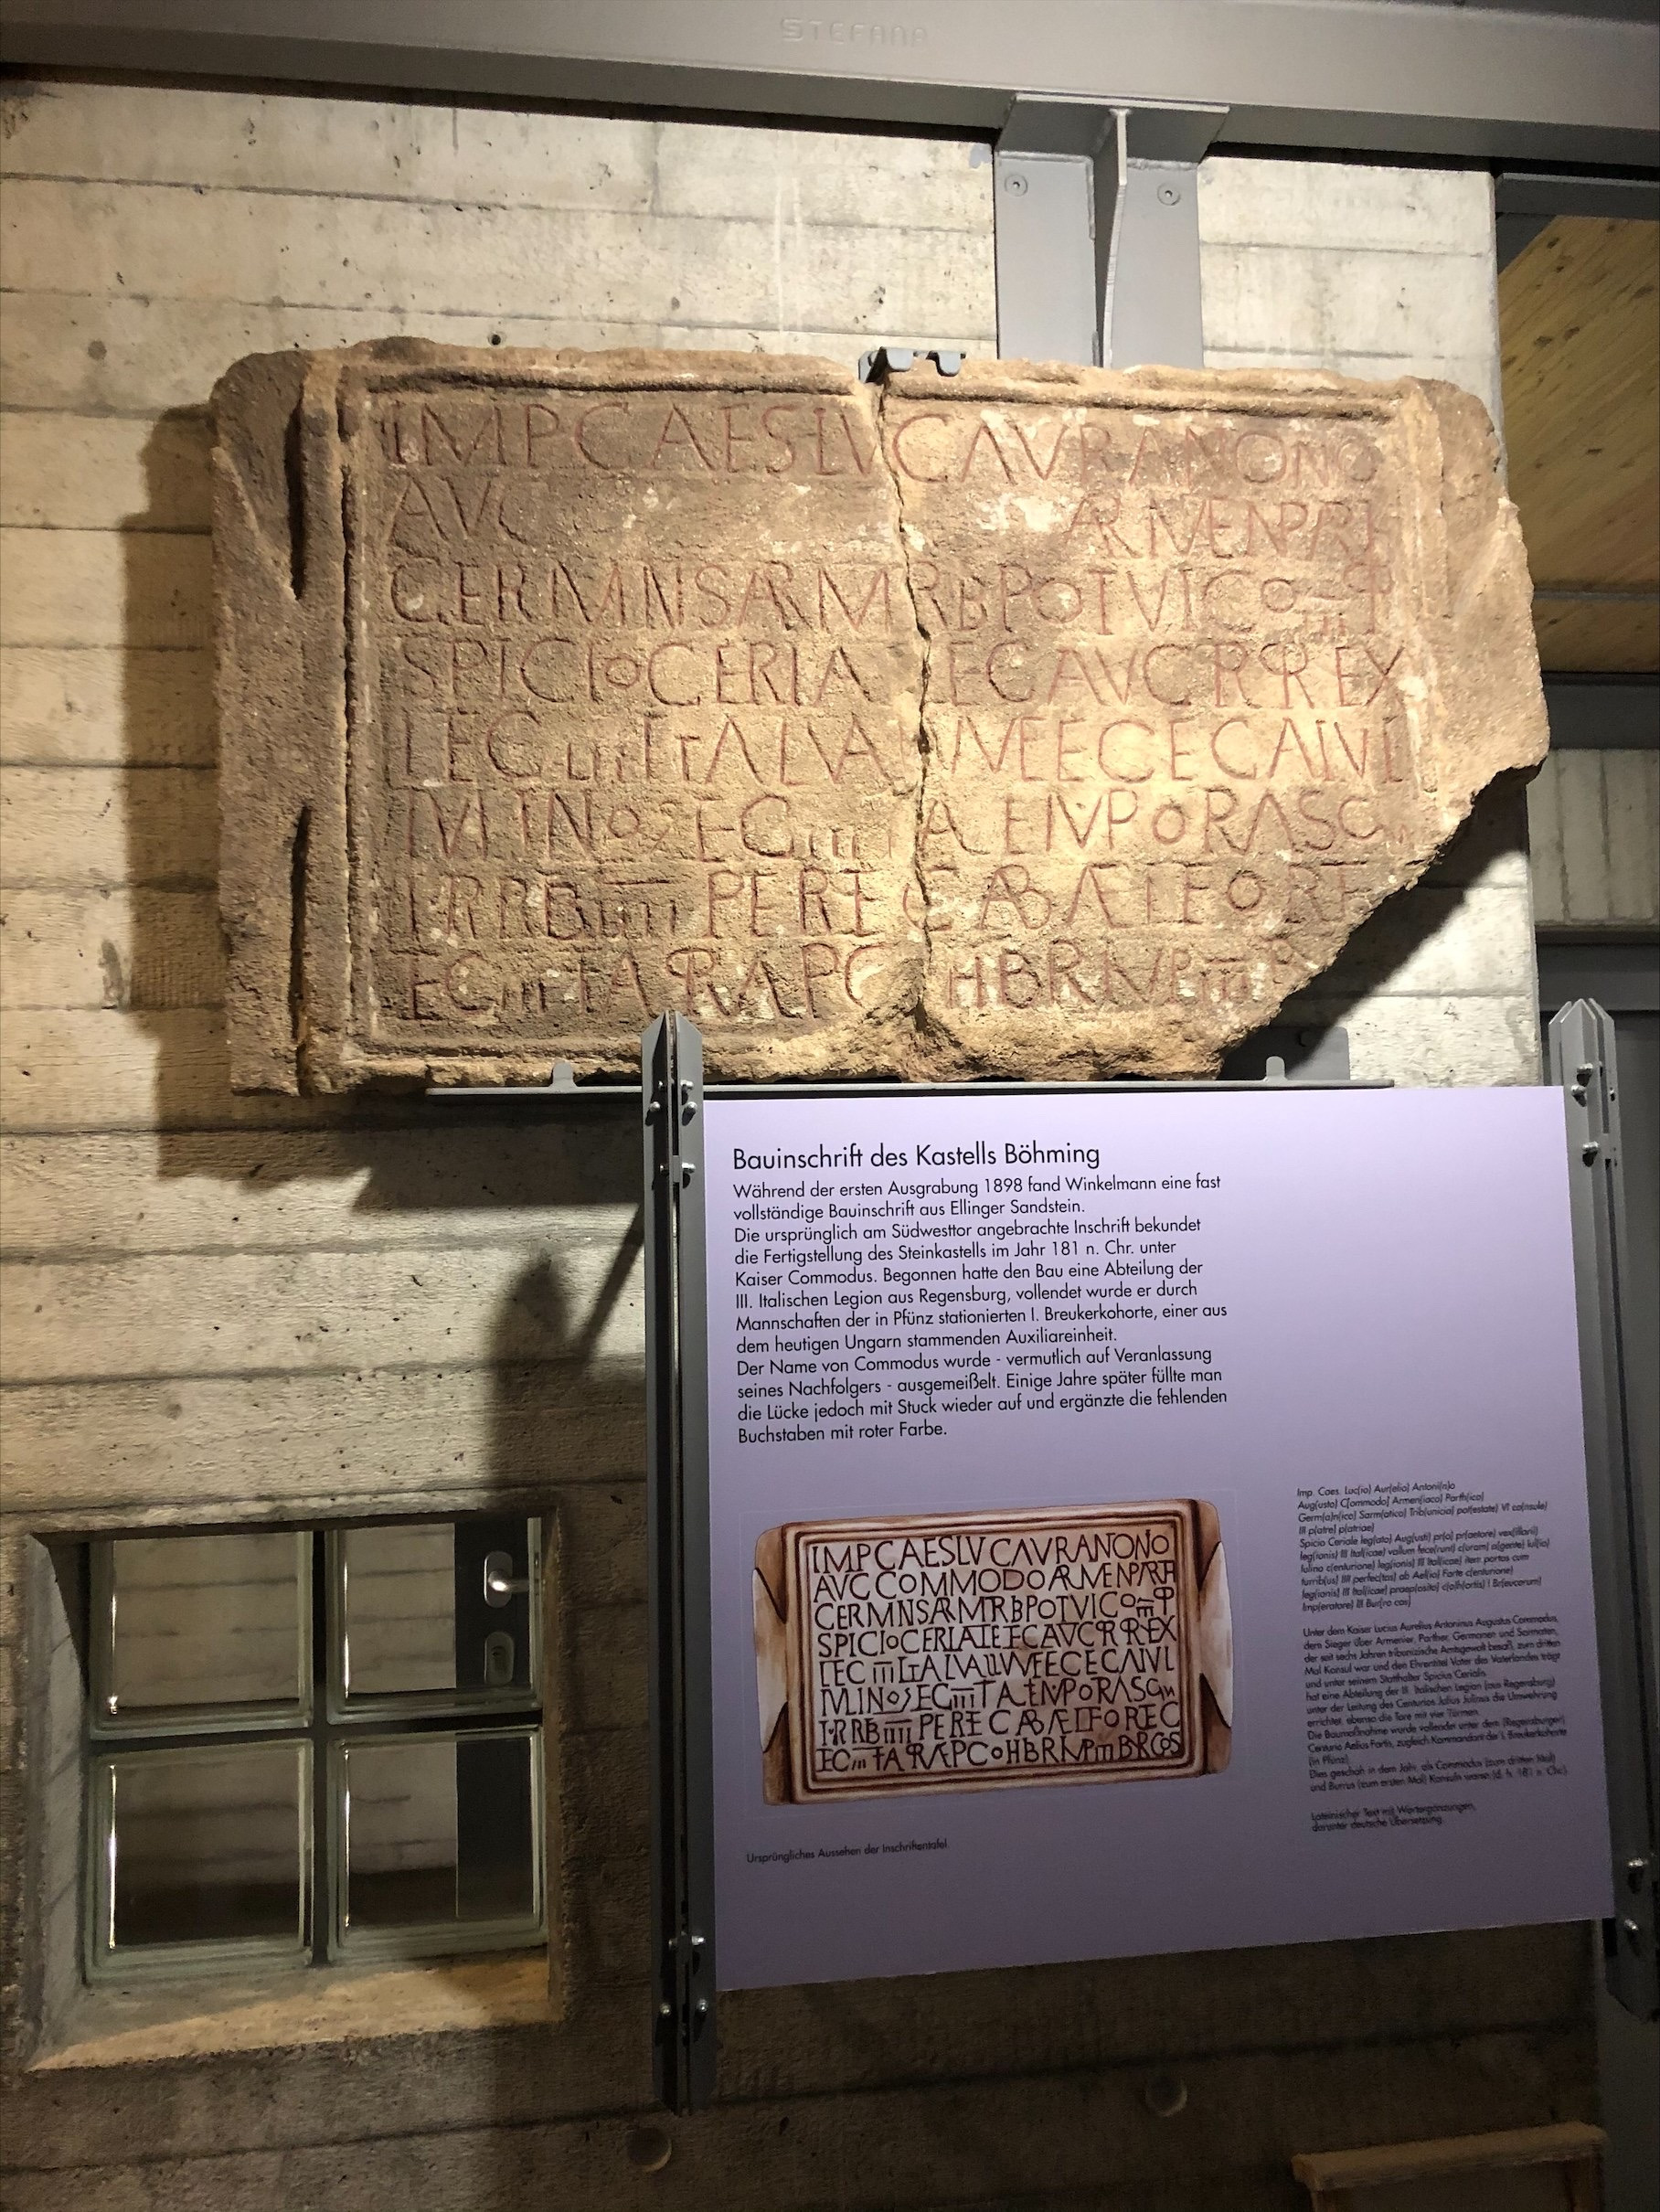 STEFANA
IMP CAES LV CAVR ANONO
AVC ARMENPRH
CERMNSARM RBPOTVICO III P
SPICIOCERIA EC AVC PR PR EX
LEC III ITALVA IVVFECECAIVL
IVLINO EC III TA EIVPORASC
PERF C AB AELFORE
EC III TA PRAPC HBRIVP III B
Bauinschrift des Kastells Böhming
Während der ersten Ausgrabung 1898 fand Winkelmann eine fast
vollständige Bauinschrift aus Ellinger Sandstein.
Die ursprünglich am Südwesttor angebrachte Inschrift bekundet
die Fertigstellung des Steinkastells im Jahr 181 n. Chr. unter
Kaiser Commodus. Begonnen hatte den Bau eine Abteilung der
III. Italischen Legion aus Regensburg, vollendet wurde er durch
Mannschaften der in Pfünz stationierten I. Breukerkohorte, einer aus
dem heutigen Ungarn stammenden Auxiliareinheit.
Der Name von Commodus wurde - vermutlich auf Veranlassung
seines Nachfolgers - ausgemeißelt. Einige Jahre später füllte man
die Lücke jedoch mit Stuck wieder auf und ergänzte die fehlenden
Buchstaben mit roter Farbe.
IMPCAESLVCAVRANONO
AVCCOMMODOARMENPARH
CERMNSARMTRBPOTVICO III P
SPICIOCERIALELECAVCPRPREX
LEC III ITALVALLVMFECECAIVL
IVLINO EC III TA ITEMPORASC
TRRB IIII PERFECABAELFORTEC
EC III TAPRAEPCOHBRIMP III BRCOS
Ursprüngliches Aussehen der Inschriftentafel
Imp. Caes. Luc(io) Aur(elio) Antoni(n)o
Aug(usto) C[ommodo] Armen(iaco) Parth(ico)
Germ(a)n(ico) Sarm(atico) Trib(unicia) pot(estate) VI co(nsule)
III p(atre) p(atriae)
Spicio Ceriale leg(ato) Aug(usti) pr(o) pr(aetore) vex(illarii)
leg(ionis) III Ital(icae) vallum fece(runt) c(uram) a(gente) Iul(io)
Iulino c(enturione) leg(ionis) III Ital(icae) item portas cum
turrib(us) IIII perfec(tas) ab Ael(io) Forte c(enturione)
leg(ionis) III Ital(icae) praep(osito) c(oh(ortis) I Br(eucorum)
Imp(eratore) III Bur(ro cos)
Unter dem Kaiser Lucius Aurelius Antoninus Augustus Commodus,
dem Sieger über Armenier, Parther, Germanen und Sarmaten,
der seit sechs Jahren tribunizische Amtsgewalt besaß, zum dritten
Mal Konsul war und den Ehrentitel Vater des Vaterlandes trägt
und unter seinem Statthalter Spicius Cerialis
hat eine Abteilung der III. Italischen Legion (aus Regensburg)
unter der Leitung des Centurios Julius Julinus die Umwehrung
errichtet, ebenso die Tore mit vier Türmen.
Die Baumaßnahme wurde vollendet unter dem (Regensburger)
Centurio Aelius Fortis, zugleich Kommandant der I. Breukerkohorte
(in Pfünz).
Dies geschah in dem Jahr, als Commodus (zum dritten Mal)
und Burrus (zum ersten Mal) Konsuln waren (d. h. 181 n. Chr.).
Lateinischer Text mit Wortergänzungen,
darunter deutsche Übersetzung.